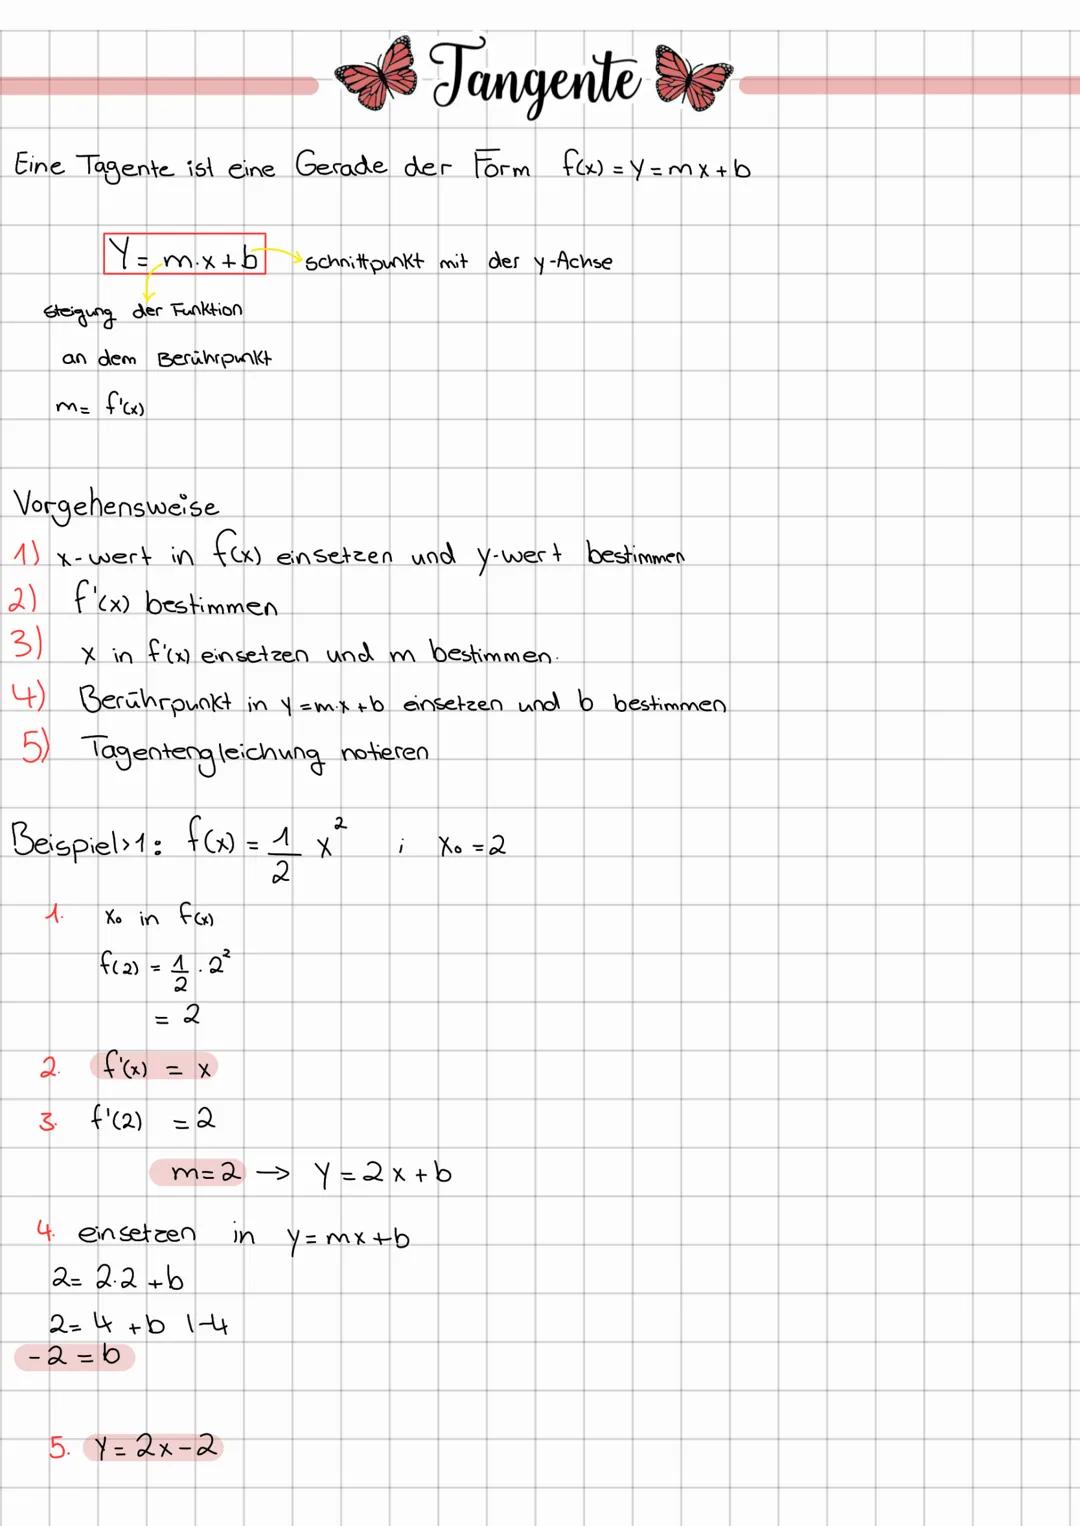 Tangente
Eine Tagente ist eine Gerade der Form f(x) = y = mx + b
Y = m·x + b schnittpunkt mit der y-Achse
steigung der Funktion
an dem Berührpunkt
m = f'(x)
Vorgehensweise
1) x-wert in f(x) einsetzen und y-wert bestimmen
2) f'(x) bestimmen
3) x in f'(x) einsetzen und m bestimmen.
4) Berührpunkt in y = m·x + b einsetzen und b bestimmen
5) Tagentengleichung notieren
Beispiel>1: f(x) = 1/2 x² ; x₀ = 2
1. x₀ in f(x)
f(2) = 1/2 · 2²
= 2
2. f'(x) = x
3. f'(2) = 2
m = 2 → y = 2x + b
4. einsetzen in y = mx + b
2 = 2·2 + b
2 = 4 + b |-4
-2 = b
5. y = 2x - 2